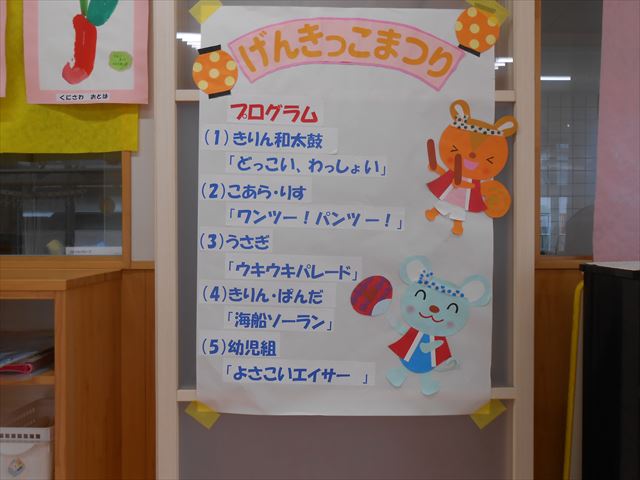 くじさわ おとは
げんきっこまつり
プログラム
(1)きりん和太鼓
「どっこい、わっしょい」
(2)こあら・りす
「ワンツー！パンツー！」
(3)うさぎ
「ウキウキパレード」
(4)きりん・ぱんだ
「海船ソーラン」
(5)幼児組
「よさこいエイサー　」